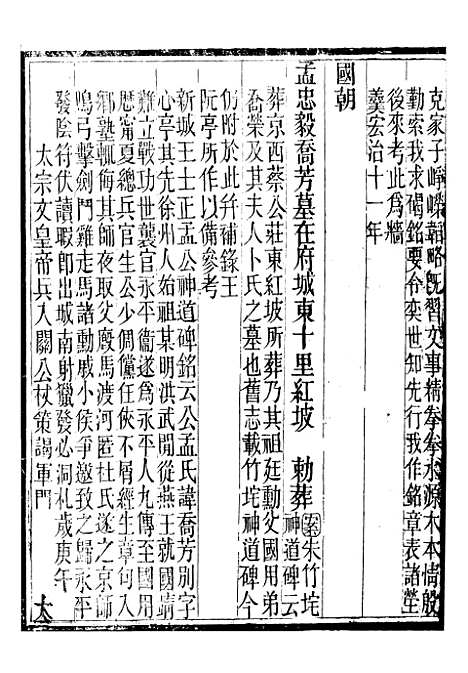 克家子崢嶸韜略旣習文事精拳拳水源木本情殷
勤索我求碣銘要令奕世知先行我作銘章表諸塋
後來考此爲牆
羹宏治十一年
國朝
孟忠毅喬芳墓在府城東十里紅坡 勅葬 案朱竹垞神道碑云
葬京西蔡公莊東紅坡所葬乃其祖廷勳父國用弟
喬榮及其夫人卜氏之墓也舊志載竹垞神道碑今
仍附於此幷補錄王
阮亭所作以備參考
新城王士正孟公神道碑銘云公孟氏諱喬芳別字
心亭其先徐州人始祖某明洪武閒從燕王就國靖
難立戰功世襲官永平衞遂爲永平人九傳至國用
歷甯夏總兵官生公少倜儻任俠不屑經生章句入
鄉塾輒侮其師夜取父廏馬渡河匿杜氏遂之京師
鳴弓擊劍鬥雞走馬諸勳戚小侯爭邀致之歸永平
發陰符伏讀暇郎出城南射獵發必洞札歲庚午
太宗文皇帝兵入關公杖策謁軍門